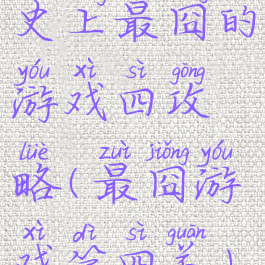 史上最囧的
yóu xì sì gōng
游戏四攻
lüè zuì jiǒng yóu
略(最囧游
xì dì sì guān
戏第四关)